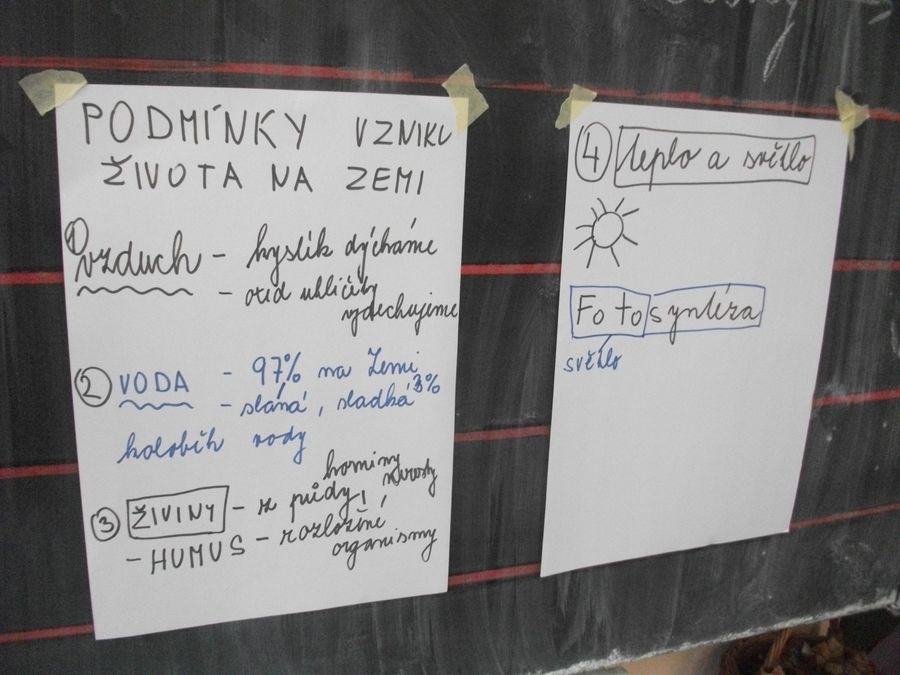 PODMÍNKY VZNIKU
ŽIVOTA NA ZEMI
1 vzduch - kyslík dýcháme
- oxid uhličitý
vydechujeme
2 VODA - 97% na Zemi
- slaná, sladká 3%
koloběh vody
3 ŽIVINY - z půdy, horniny nerosty
- HUMUS - rozložené
organismy
4 teplo a světlo
Fotosyntéza
světlo